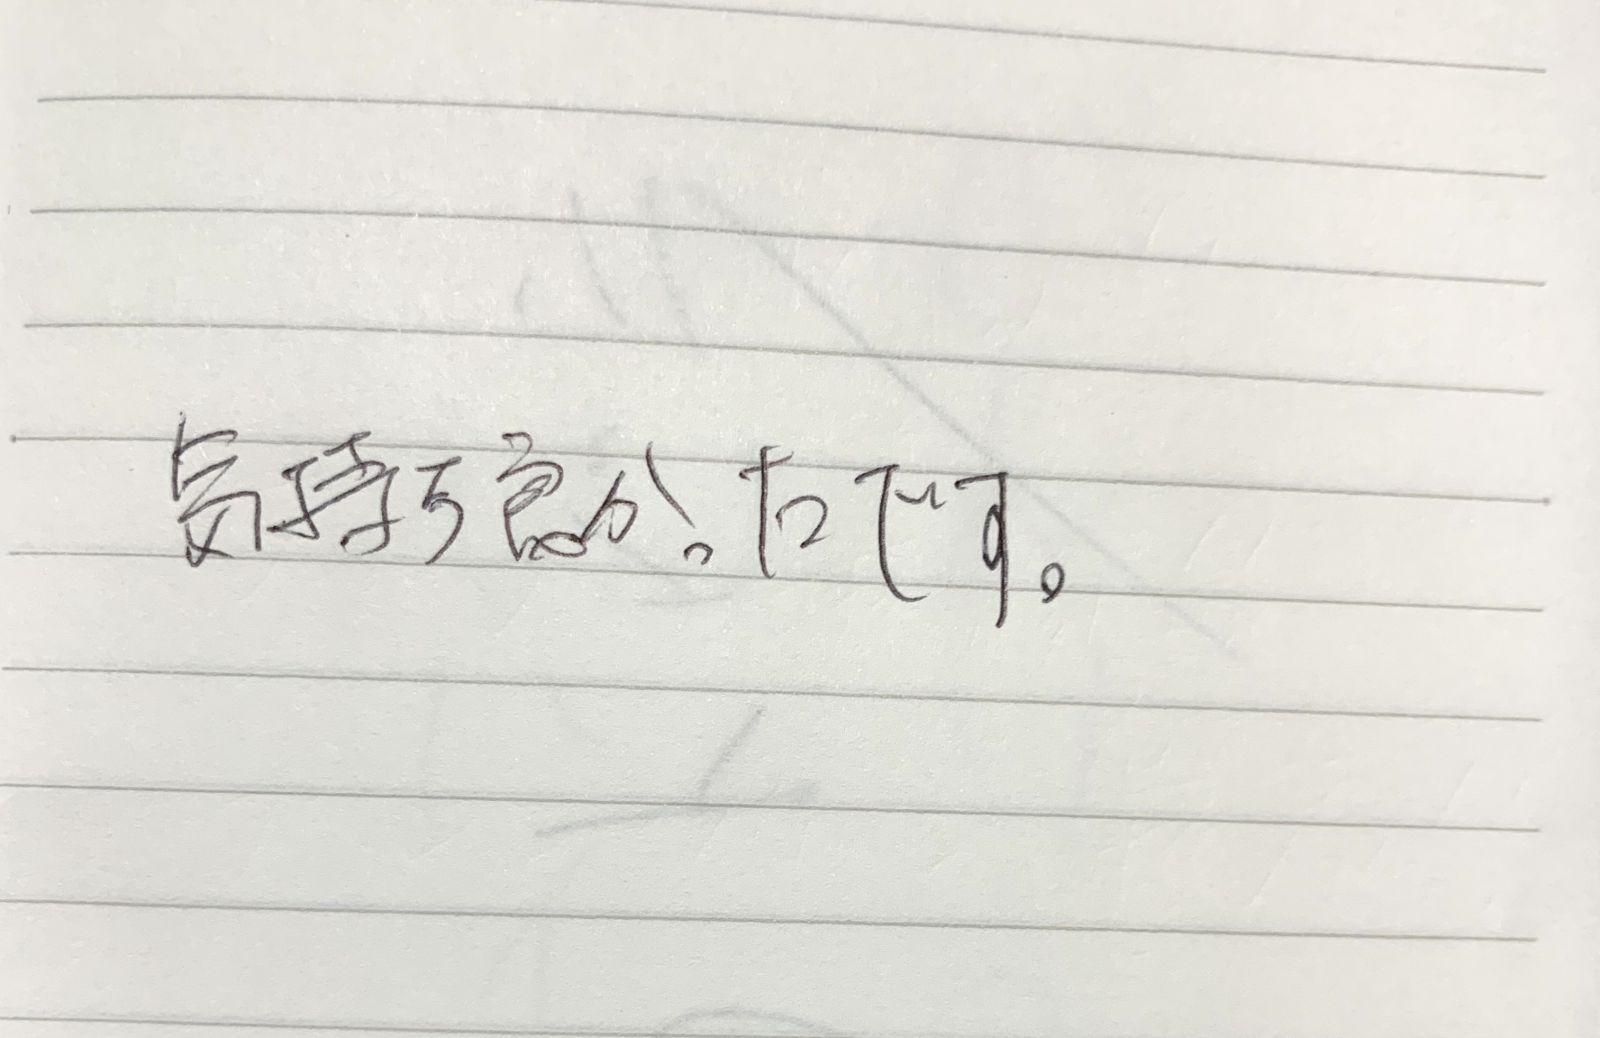 気持ち良かったです。